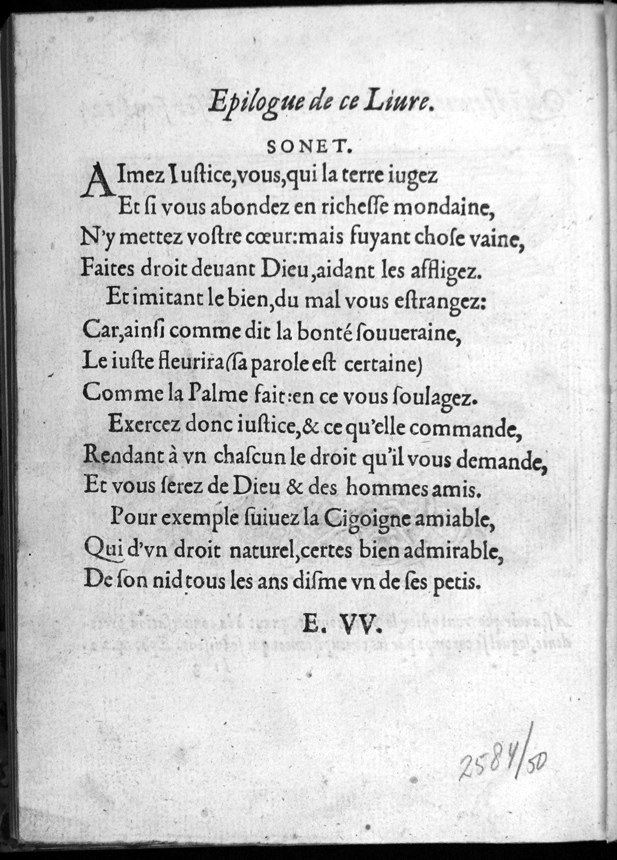 Epilogue de ce Liure.
SONET.
AImez Iuſtice,vous,qui la terre iugez
Et ſi vous abondez en richeſſe mondaine,
N'y mettez voſtre cœur:mais fuyant choſe vaine,
Faites droit deuant Dieu,aidant les affligez.
Et imitant le bien,du mal vous eſtrangez:
Car,ainſi comme dit la bonté ſouueraine,
Le iuſte fleurira(ſa parole eſt certaine)
Comme la Palme fait:en ce vous ſoulagez.
Exercez donc iuſtice,& ce qu'elle commande,
Rendant à vn chaſcun le droit qu'il vous demande,
Et vous ſerez de Dieu & des hommes amis.
Pour exemple ſuiuez la Cigoigne amiable,
Qui d'vn droit naturel,certes bien admirable,
De ſon nid tous les ans diſme vn de ſes petis.
E. VV.
2584/50